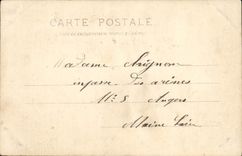 CARTE POSTALE
Madame Avignon
impasse des arènes
N° 8 Angers
Maine Loire